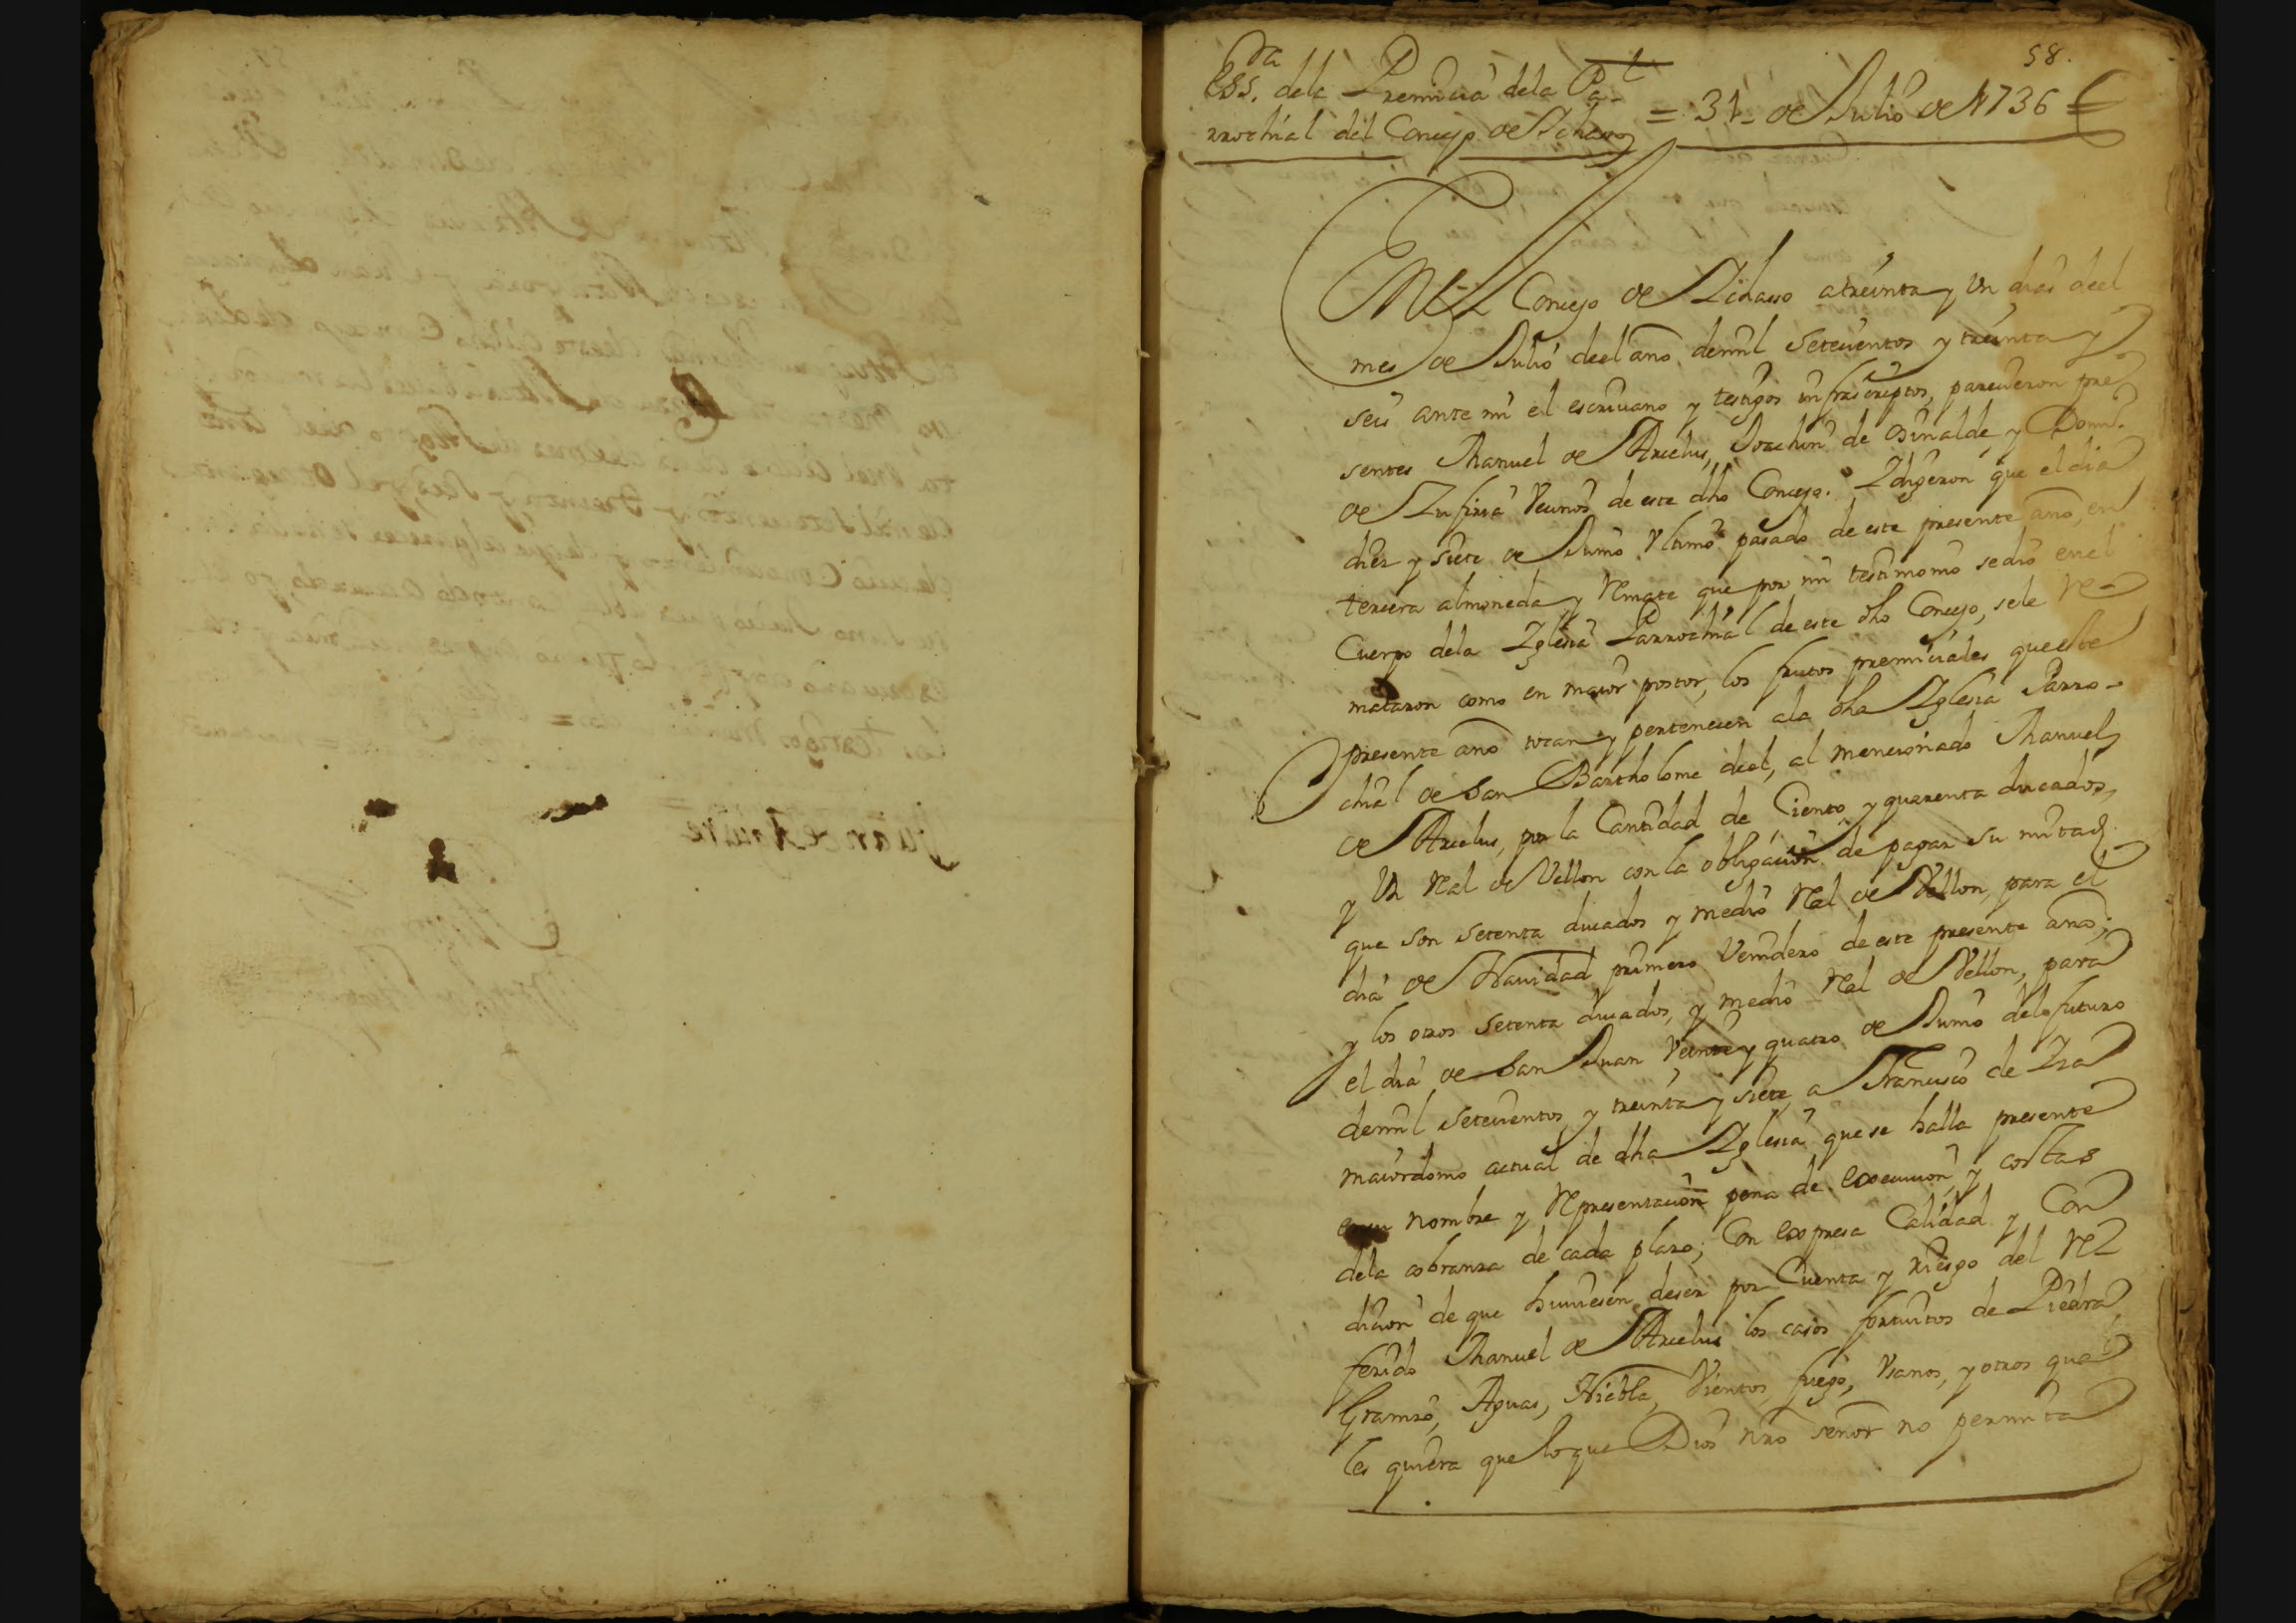 58.
Ess.ra dela Premicia dela Pa-
rrochial del Concejo de Ichaso = 31- de Julio de 1736 =
En el Concejo de Ichaso a treinta y un dias del
mes de Julio deel año demil setecientos y treinta y
seis ante mi el escriuano y testigos infrascriptos, parecieron pre
sentes Manuel de Arcelus, Joachin de Osinalde, y Domi.o
de Zufiria Vecinos de este dho Concejo. Y dijeron que el dia
diez y siete de Junio Vltimo pasado de este presente año, en
tercera almoneda y Remate que por mi testimonio se dio en el
Cuerpo dela Iglesia Parrochial de este dho Concejo, se le Re-
mataron como en maior postor, los frutos premiciales que este
presente año tocan y pertenecen ala dha Iglesia Parro-
chial de San Bartholome deel, al mencionado Manuel
de Arcelus, por la Cantidad de Ciento y quarenta ducados,
y Un Real de Vellon con la obligacion de pagar su mitad
que son setenta ducados y medio Real de Vellon, para el
dia de Navidad primero Venidero de este presente año;
y los otros setenta ducados, y medio Real de Vellon, para
el dia de San Juan Veinte y quatro de Junio delo futuro
demil setecientos y treinta y siete, a Francisco de Ira
maiordomo actual de dha Iglesia que se halla presente
en su nombre y Representacion pena de execucion, y costas
dela cobranza de cada plazo; Con expresa Calidad y Con
dicion de que huuiesen deser por Cuenta y riesgo del Re
ferido Manuel de Arcelus los casos fortuitos de Piedra,
Granizo, Aguas, Niebla, Vientos, fuego, Vsanos, y otros qua
les quiera que lo que Dios nro señor no permita